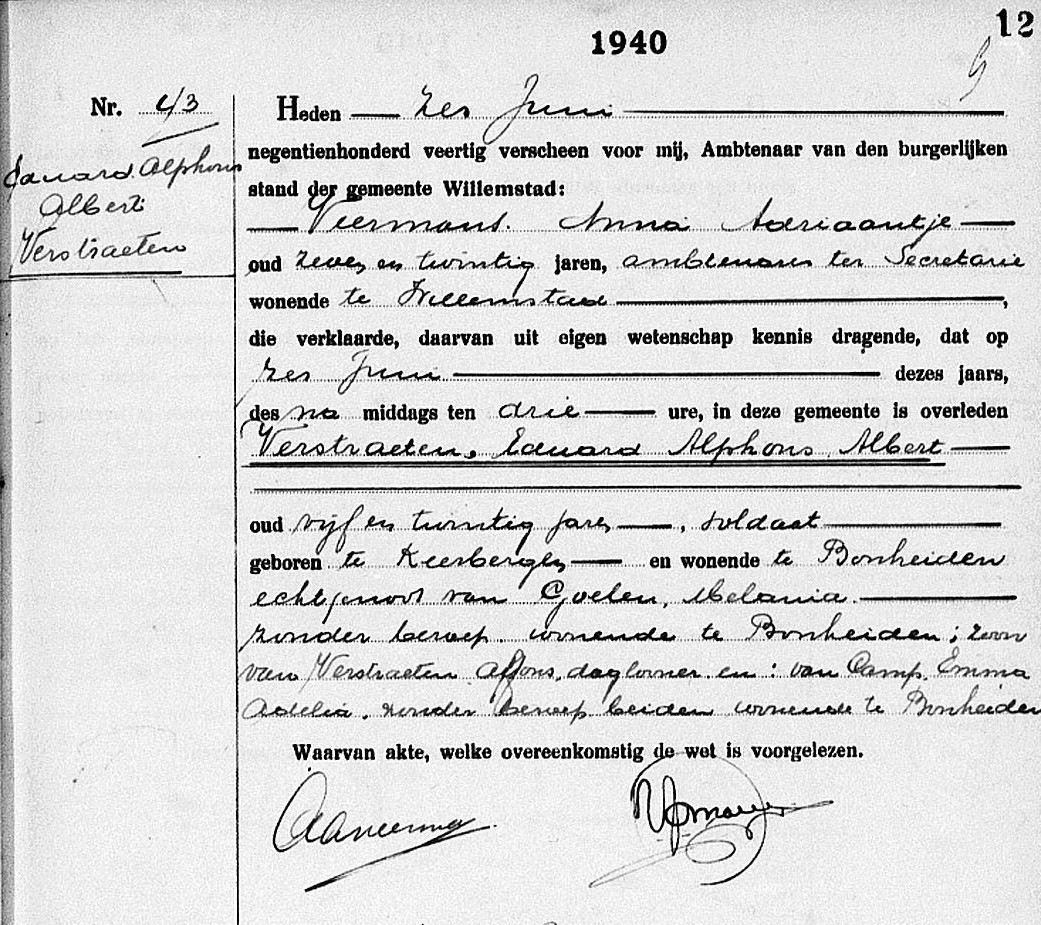 1940
12
Nr. 43
Eduard Alphons
Albert
Verstraeten
Heden zes Juni
negentienhonderd veertig verscheen voor mij, Ambtenaar van den burgerlijken
stand der gemeente Willemstad:
Veermans. Anna Adriaantje
oud zeven en twintig jaren, ambtenares ter Secretarie
wonende te Willemstad,
die verklaarde, daarvan uit eigen wetenschap kennis dragende, dat op
zes Juni dezes jaars,
des na middags ten drie ure, in deze gemeente is overleden
Verstraeten, Eduard Alphons Albert
oud vijf en twintig jaren, soldaat
geboren te Keerbergen en wonende te Bonheiden
echtgenoot van Goelen, Melania.
zonder beroep. wonende te Bonheiden; zoon
van Verstraeten Alfons, daglooner en: van Camp, Emma
Adelia, zonder beroep beiden wonende te Bonheiden
Waarvan akte, welke overeenkomstig de wet is voorgelezen.